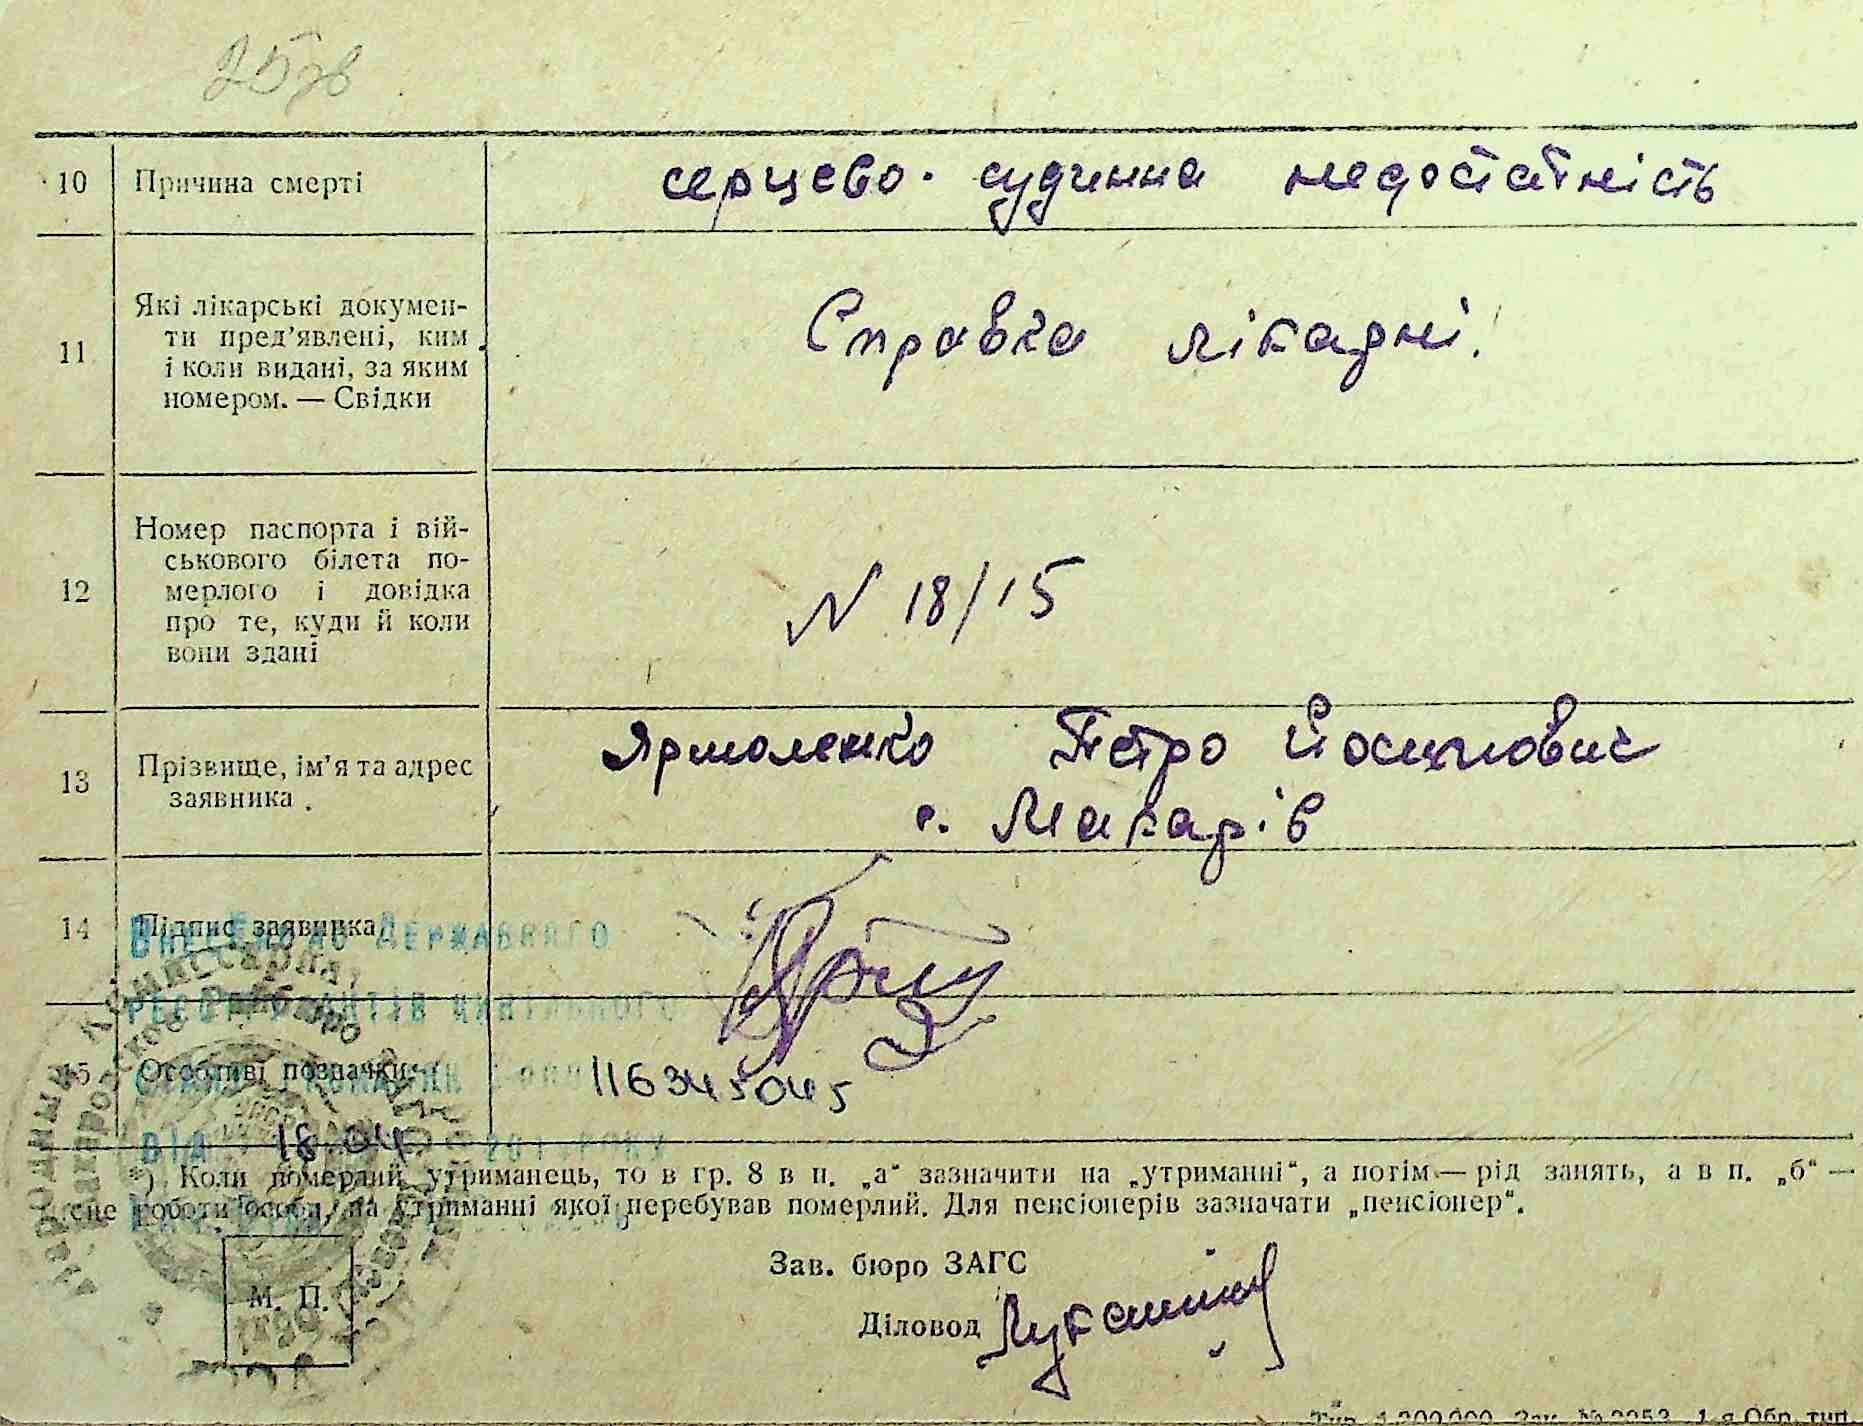 10 Причина смерті серцево-судинна недостатність
11 Які лікарські докумен-
ти пред’явлені, ким
і коли видані, за яким
номером. — Свідки
Справка лікарні.
12 Номер паспорта і вій-
ськового білета по-
мерлого і довідка
про те, куди й коли
вони здані
N 18/15
13 Прізвище, ім’я та адрес
заявника.
Ярмоленко Петро Йосипович
с. Макарів
14 Підпис заявника
Внесено до Державного
15 Особливі позначки
116345045
від 18 04 201 року
*) Коли померлий утриманець, то в гр. 8 в п. „а“ зазначити на „утриманні“, а потім — рід занять, а в п. „б“ —
роботи особи, на утриманні якої перебував померлий. Для пенсіонерів зазначати „пенсіонер“.
Зав. бюро ЗАГС
М. П.
Діловод